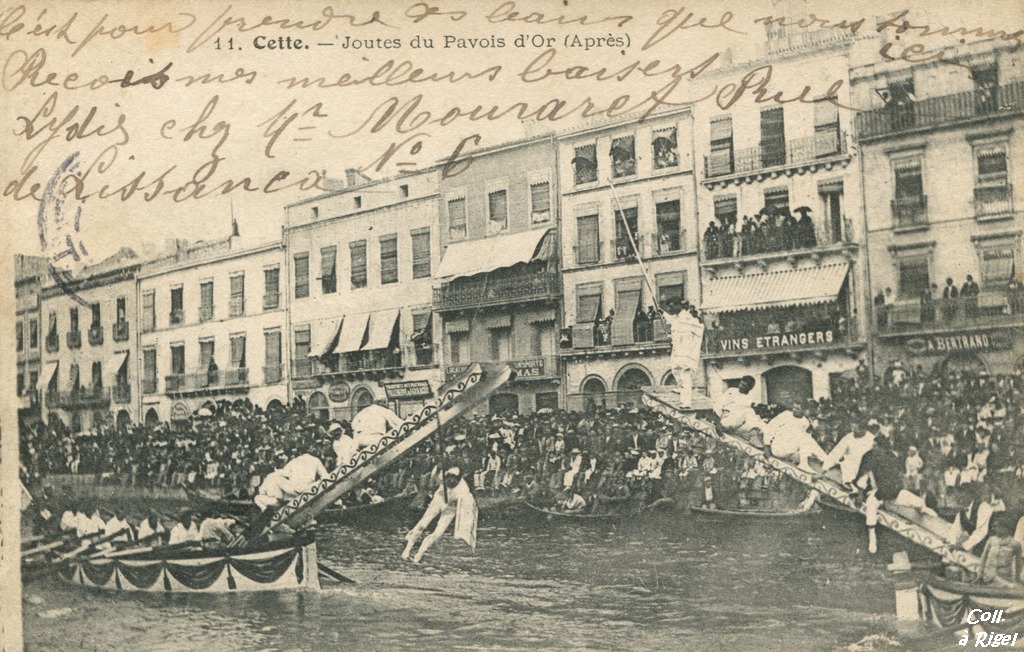 C'est pour prendre des bains que nous sommes ici
11. Cette. — Joutes du Pavois d'Or (Après)
Reçois mes meilleurs baisers
Lydie chez Mr Mouraret Rue
de Lissanca No 6
VINS ETRANGERS
A. BERTRAND
MAS
Coll.
à Rigel